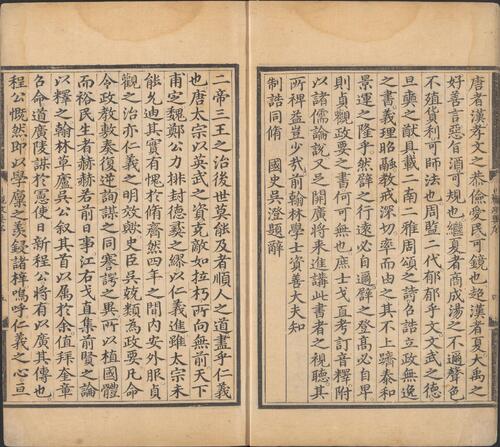 唐者漢孝文之恭儉愛民可鏡也超漢者夏大禹之
好善言惡旨酒可規也繼夏者商成湯之不邇聲色
不殖貨利可師法也周監二代郁郁乎文文武之德
旦奭之猷具載二南二雅周頌之詩召誥立政無逸
之書義理昭融教戒深切率而由之其不上躋泰和
景運之隆乎然譬之行遠必自邇譬之登高必自卑
則貞觀政要之書何可無也庶士戈直考訂音釋附
以諸儒論說又足開廣將來進講此書者之視聽其
所裨益豈少哉前翰林學士資善大夫知
制誥同脩 國史吳澄題辭
二帝三王之治後世莫能及者順人之道盡乎仁義
也唐太宗以英武之資克敵如拉朽所向無前天下
甫定魏鄭公力排封德彝之繆以仁義進雖太宗未
能允迪其實有愧於脩齊然四年之間內安外服貞
觀之治亦仁義之明效歟史臣吳兢類為政要凡命
令政教敷奏復逆詢謀之同謇諤之異所以植國體
而裕民生者赫赫若前日事江右戈直集前賢之論
以釋之翰林草廬吳公敘其首以屬於余值拜奎章
召命道廣陵謀於憲使日新程公將有以廣其傳也
程公慨然即以學廩之羨鋟諸梓嗚呼仁義之心亘